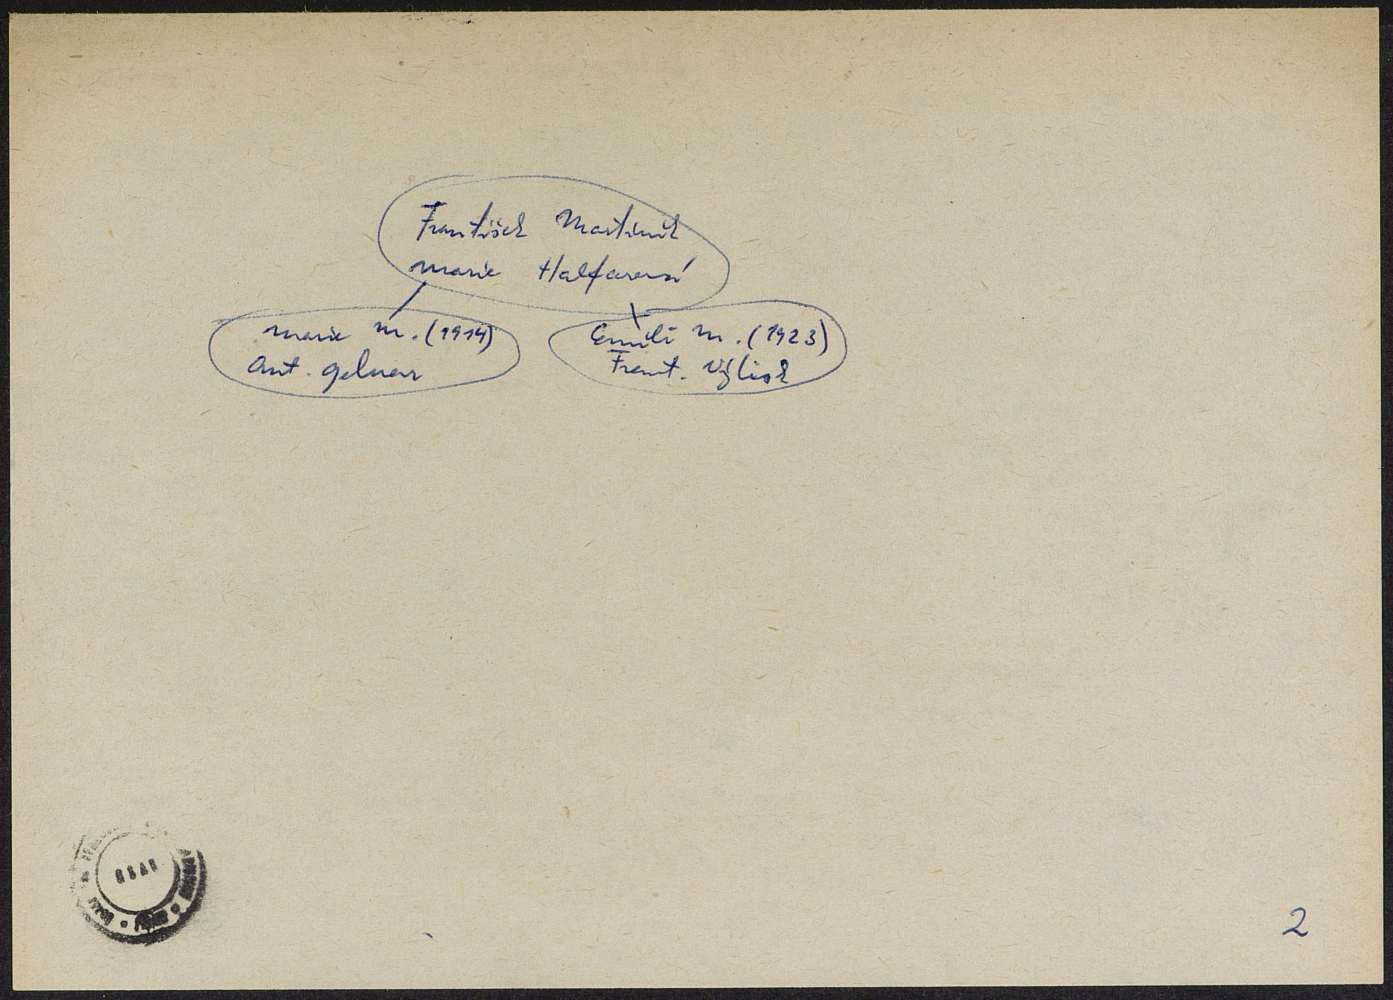 František Martiník
Marie Halfarová
Marie M. (1914)
Ant. Gelnar
Emili M. (1923)
Frant.
2